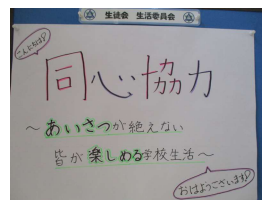 生徒会 生活委員会
こんにちは!
同心協力
～あいさつが絶えない
皆が楽しめる学校生活～
おはようございます!